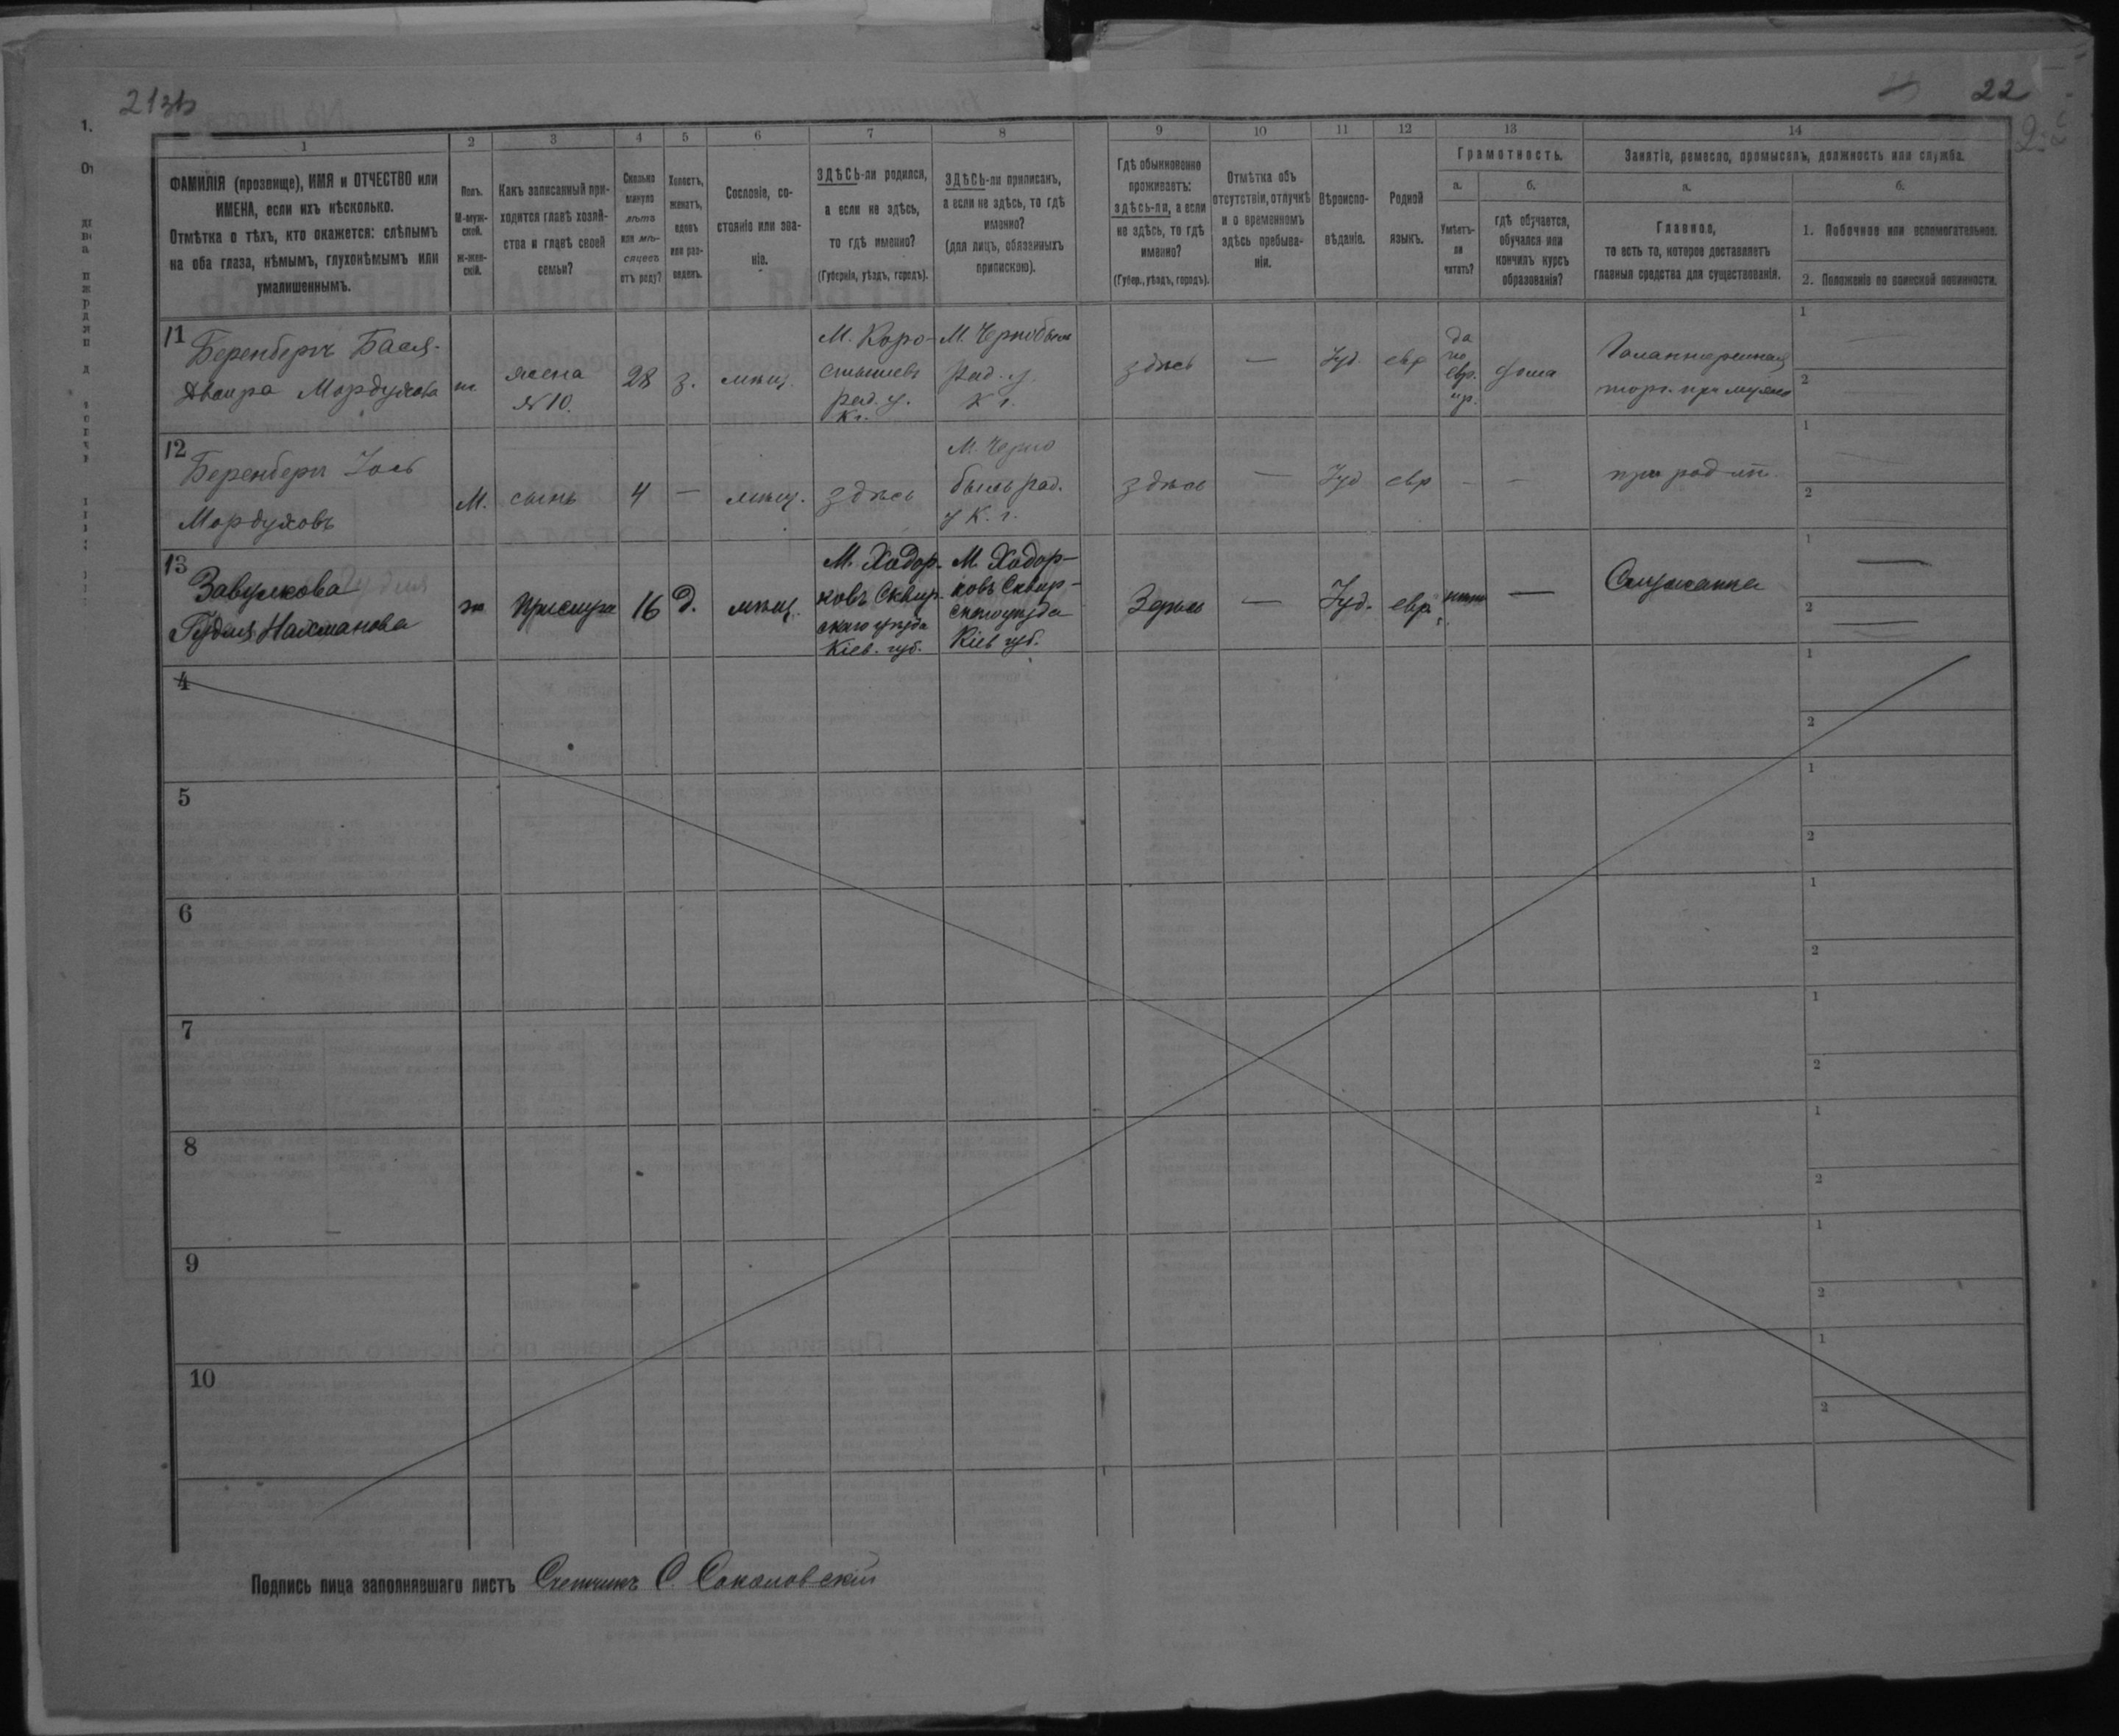 213b
22
1 2 3 4 5 6 7 8 9 10 11 12 13 14
ФАМИЛІЯ (прозвище), ИМЯ и ОТЧЕСТВО или
ИМЕНА, если ихъ нѣсколько.
Отмѣтка о тѣхъ, кто окажется: слѣпымъ
на оба глаза, нѣмымъ, глухонѣмымъ или
умалишеннымъ.
Полъ.
М-муж-
ской.
Ж-жен-
скій.
Какъ записанный при-
ходится главѣ хозяй-
ства и главѣ своей
семьи?
Сколько
минуло
лѣтъ
или мѣ-
сяцевъ
отъ роду?
Холостъ,
женатъ,
вдовъ
или раз-
веденъ.
Сословіе, со-
стояніе или зва-
ніе.
ЗДѢСЬ-ли родился,
а если не здѣсь,
то гдѣ именно?
(Губернія, уѣздъ, городъ).
ЗДѢСЬ-ли приписанъ,
а если не здѣсь, то гдѣ
именно?
(для лицъ, обязанныхъ
припискою).
Гдѣ обыкновенно
проживаетъ:
здѣсь-ли, а если
не здѣсь, то гдѣ
именно?
(Губер., уѣздъ, городъ).
Отмѣтка объ
отсутствіи, отлучкѣ
и о временномъ
здѣсь пребыва-
ніи.
Вѣроиспо-
вѣданіе.
Родной
языкъ.
Грамотность.
а.
Умѣетъ-
ли
читать?
б.
гдѣ обучается,
обучался или
кончилъ курсъ
образованія?
Занятіе, ремесло, промыселъ, должность или служба.
а.
Главное,
то есть то, которое доставляетъ
главныя средства для существованія.
б.
1. Побочное или вспомогательное.
2. Положеніе по воинской повинности.
11
Беренбергъ Бася-
Двейра Мордухова
ж
жена
№ 10.
28
з.
мѣщ.
М. Коро-
стышевъ
рад. у.
К г.
М. Чернобыль
рад. у.
К г.
здѣсь
—
Іуд.
евр
да
по
евр.
дома
Галантерейная
торг. при мужѣ
1
2
12
Беренбергъ Іось
Мордуховъ
М.
сынъ
4
—
мѣщ.
здѣсь
М. Черно
быль рад.
у К. г.
здѣсь
—
Іуд
евр
-
-
при род
1
2
13
Завулкова
Гудля Нахманова
ж
Прислуга
16
д.
мѣщ.
М. Ходор-
ковъ Сквир-
скаго уѣзда
Кіев. губ.
М. Ходор-
ковъ Сквир-
скаго уѣзда
Кіев губ.
Здѣсь
—
Іуд.
евр.
нѣтъ
—
Служанка
1 —
2 —
4
1
2
5
1
2
6
1
2
7
1
2
8
1
2
9
1
2
10
1
2
Подпись лица заполнявшаго листъ Счетчикъ С. Соколовскій